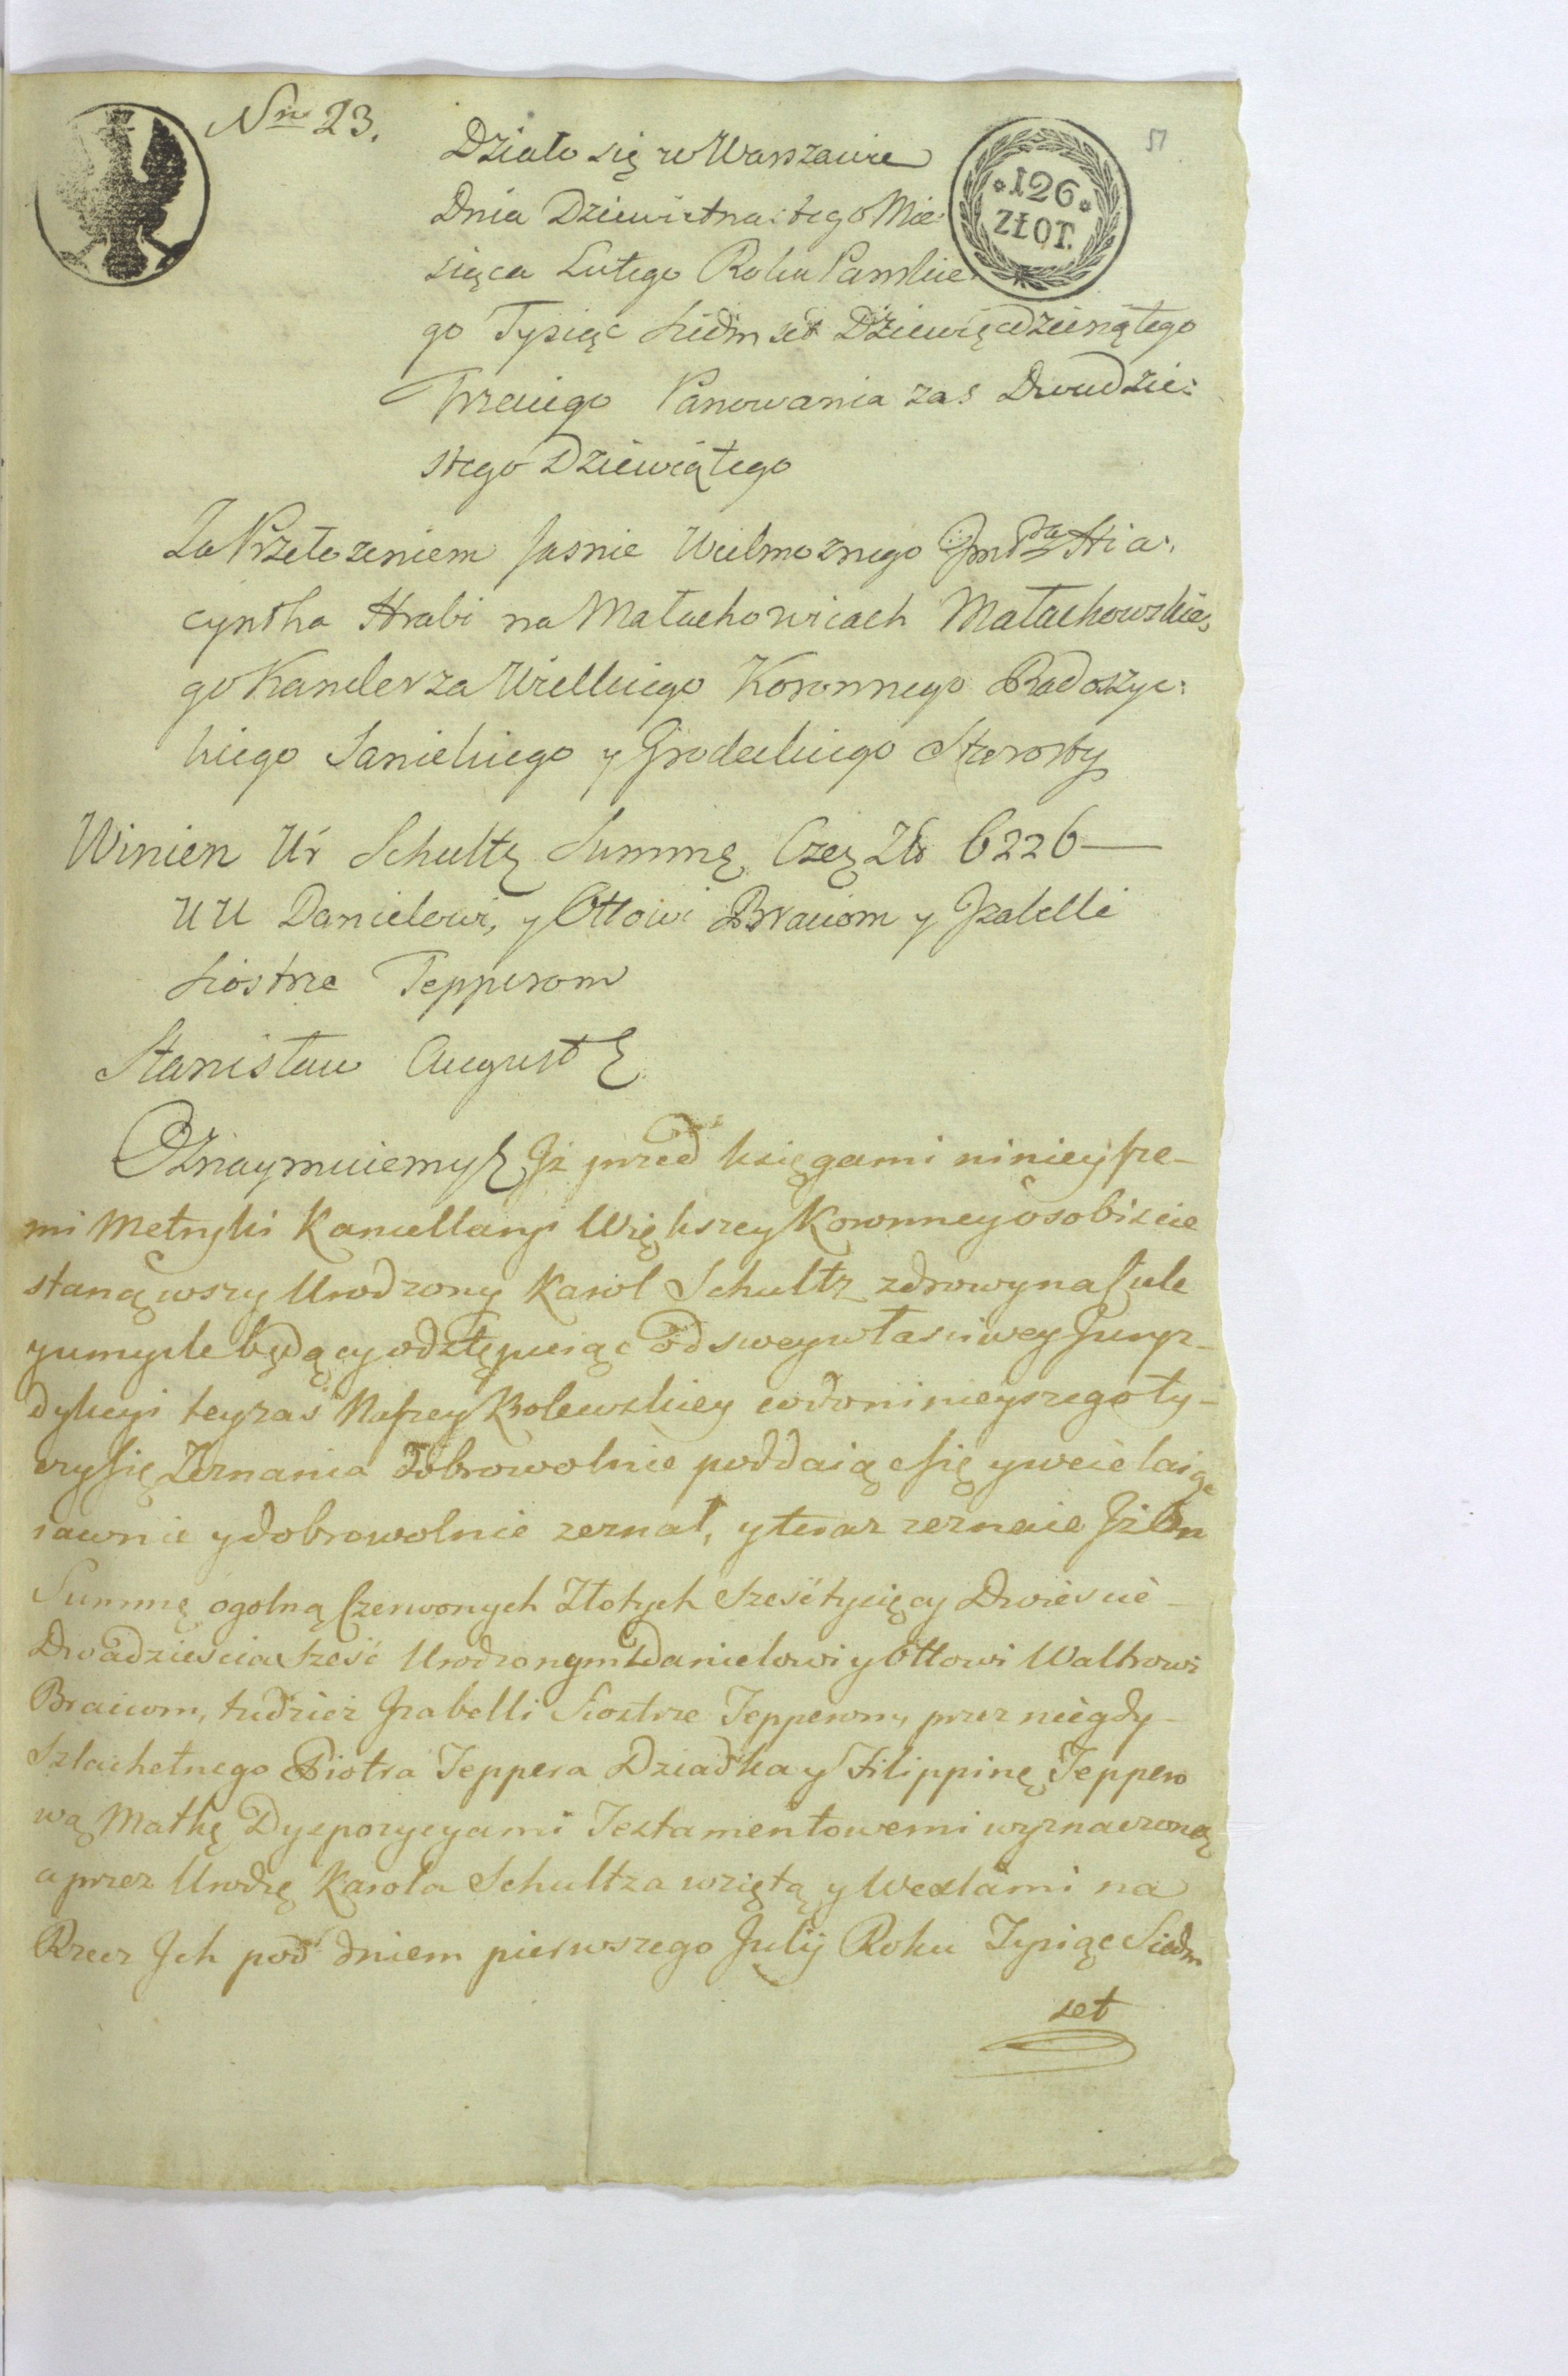 Nro 23.
51
*126*
ZŁOT.
Działo się w Warszawie
Dnia Dziewiętnastego Mie:
siąca Lutego Roku Panskie:
go Tysiąc Siedm set Dziewięcdziesiątego
Trzeciego Panowania zas Dwudzie:
stego Dziewiątego
Za Przełozeniem Jasnie Wielmoznego Jmć Pna Hia:
cyntha Hrabi na Małachowicach Małachowskie:
go Kanclerza Wielkiego Koronnego Radoszyc:
kiego Sanickiego y Grodeckiego Starosty
Winien Ur Schultz Summę Czer Zło 6226—
UU Danielowi, y Ottowi Braciom y Izabelli
Siostrze Tepperom
Stanisław August &
Oznaymuiemy & Iż przed księgami ninieysze-
mi Metryki Kancellaryi Większey Koronney osobiscie
stanąwszy Urodzony Karol Schultz zdrowy na ciele
y umysle będący odstępuiąc od swey własciwey Juryz-
dykcyi teyzas Naszey Krolewskiey co do ninieyszego ty-
czy się Zeznania dobrowolnie poddaiąc się y wcielaiąc
iawnie y dobrowolnie zeznał, y teraz zeznaie Iż On
Summę ogolną Czerwonych Złotych Sześć tysięcy Dwiescie-
Dwadziescia Sześć Urodzonym Danielowi y Ottowi Waltrowi
Braciom, tudzież Izabelli Siostrze Tepperom, przez niegdy-
Szlachetnego Piotra Teppera Dziadka y Filippinę Teppero
wą Matkę Dyspozycyami Testamentowemi wyznaczoną
a przez Urodzę Karola Schultza wziętą y Wexlami na
Rzecz Ich pod dniem pierwszego July Roku Tysiąc Siedm
set